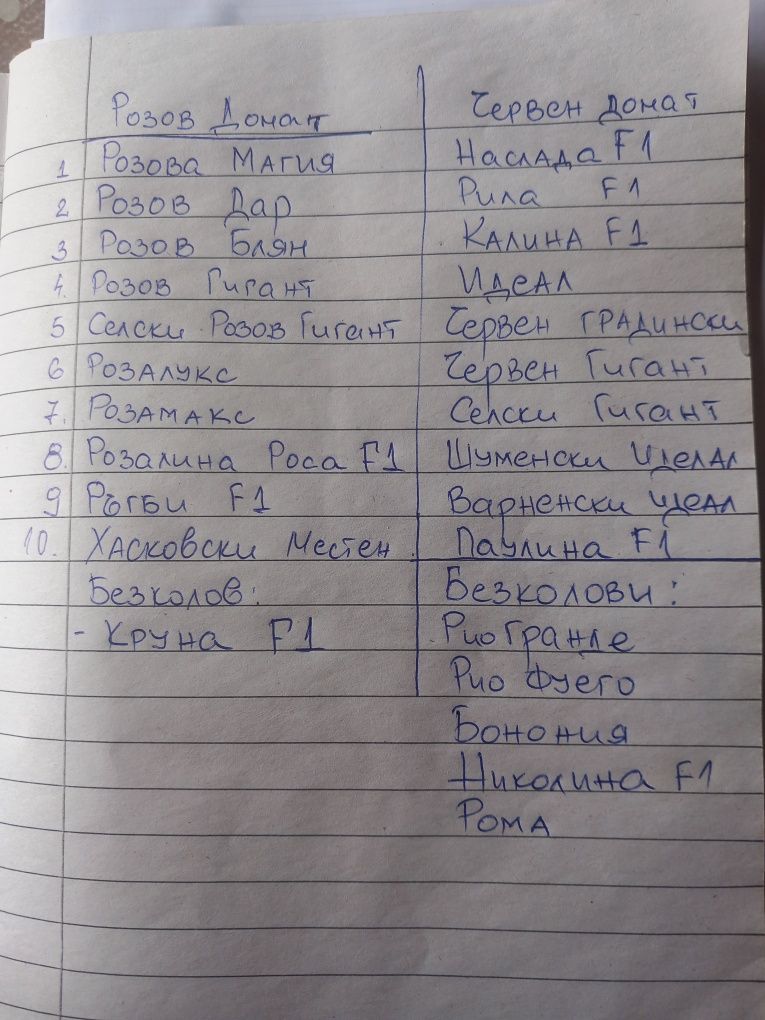 Розов Домат
1 Розова Магия
2 Розов Дар
3 Розов Блян
4. Розов Гигант
5 Селски Розов Гигант
6 Розалукс
7. Розамакс
8. Розалина Роса F1
9 Ръгби F1
10. Хасковски Местен
Безколов:
- Круна F1
Червен домат
Наслада F1
Рила F1
Калина F1
Идеал
Червен градински
Червен Гигант
Селски Гигант
Шуменски Идеал
Варненски идеал
Паулина F1
Безколови:
Рио Гранде
Рио Фуего
Бонония
Николина F1
Рома